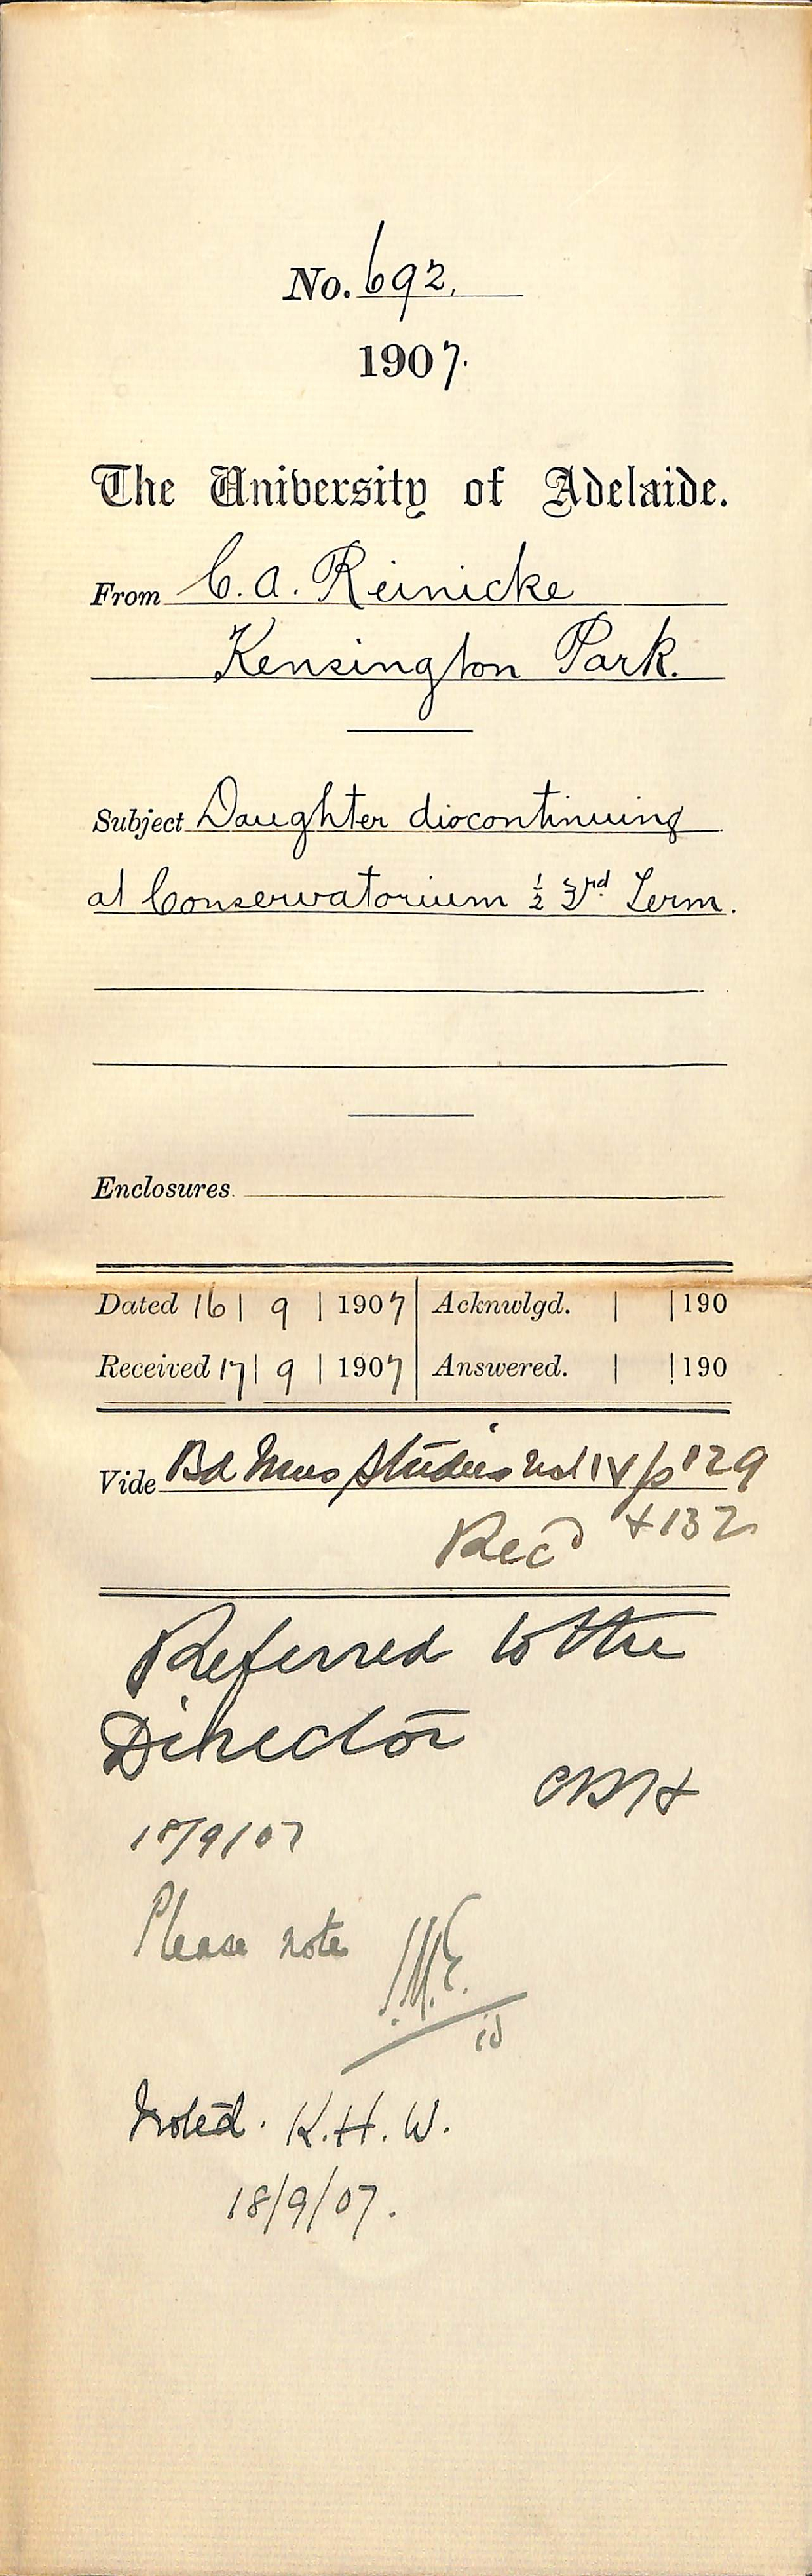 No. 692.
1907.
The University of Adelaide.
From C. A. Reinicke
Kensington Park.
Subject Daughter discontinuing
at Conservatorium ½ 3rd Term.
Enclosures.
Dated 16 | 9 | 1907 | Acknwlgd. | | 190
Received 17 | 9 | 1907 | Answered. | | 190
Vide Bd Mus Studies Vol IV p 129
Rec'd + 132
Referred to the
Director
CRH
18/9/07
Please note
Noted. K.H.W.
18/9/07.